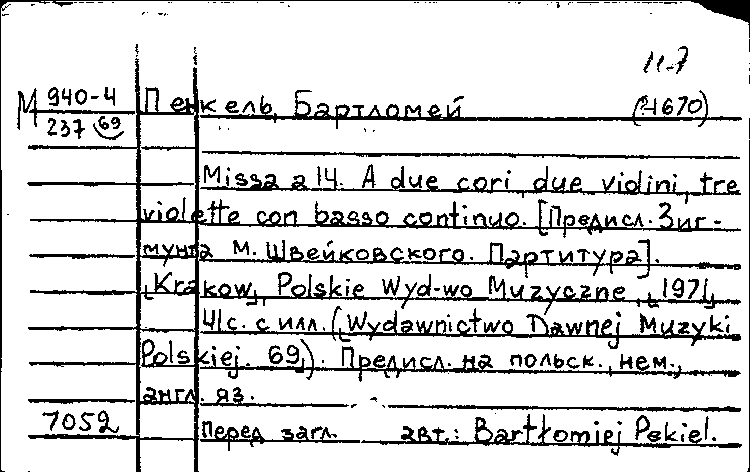 11-7
М 940-4 Пенкель, Бартломей (?-1670)
237 69
Missa a 14. A due cori, due violini, tre
violette con basso continuo. [Предисл. Зиг-
мунта М. Швейковского. Партитура].
[Krakow], Polskie Wyd-wo Muzyczne, [1971]
41 с. с илл. (Wydawnictwo Dawnej Muzyki
Polskiej. 69). Предисл. на польск., нем.,
англ. яз.
7052 Перед загл. авт.: Bartłomiej Pękiel.